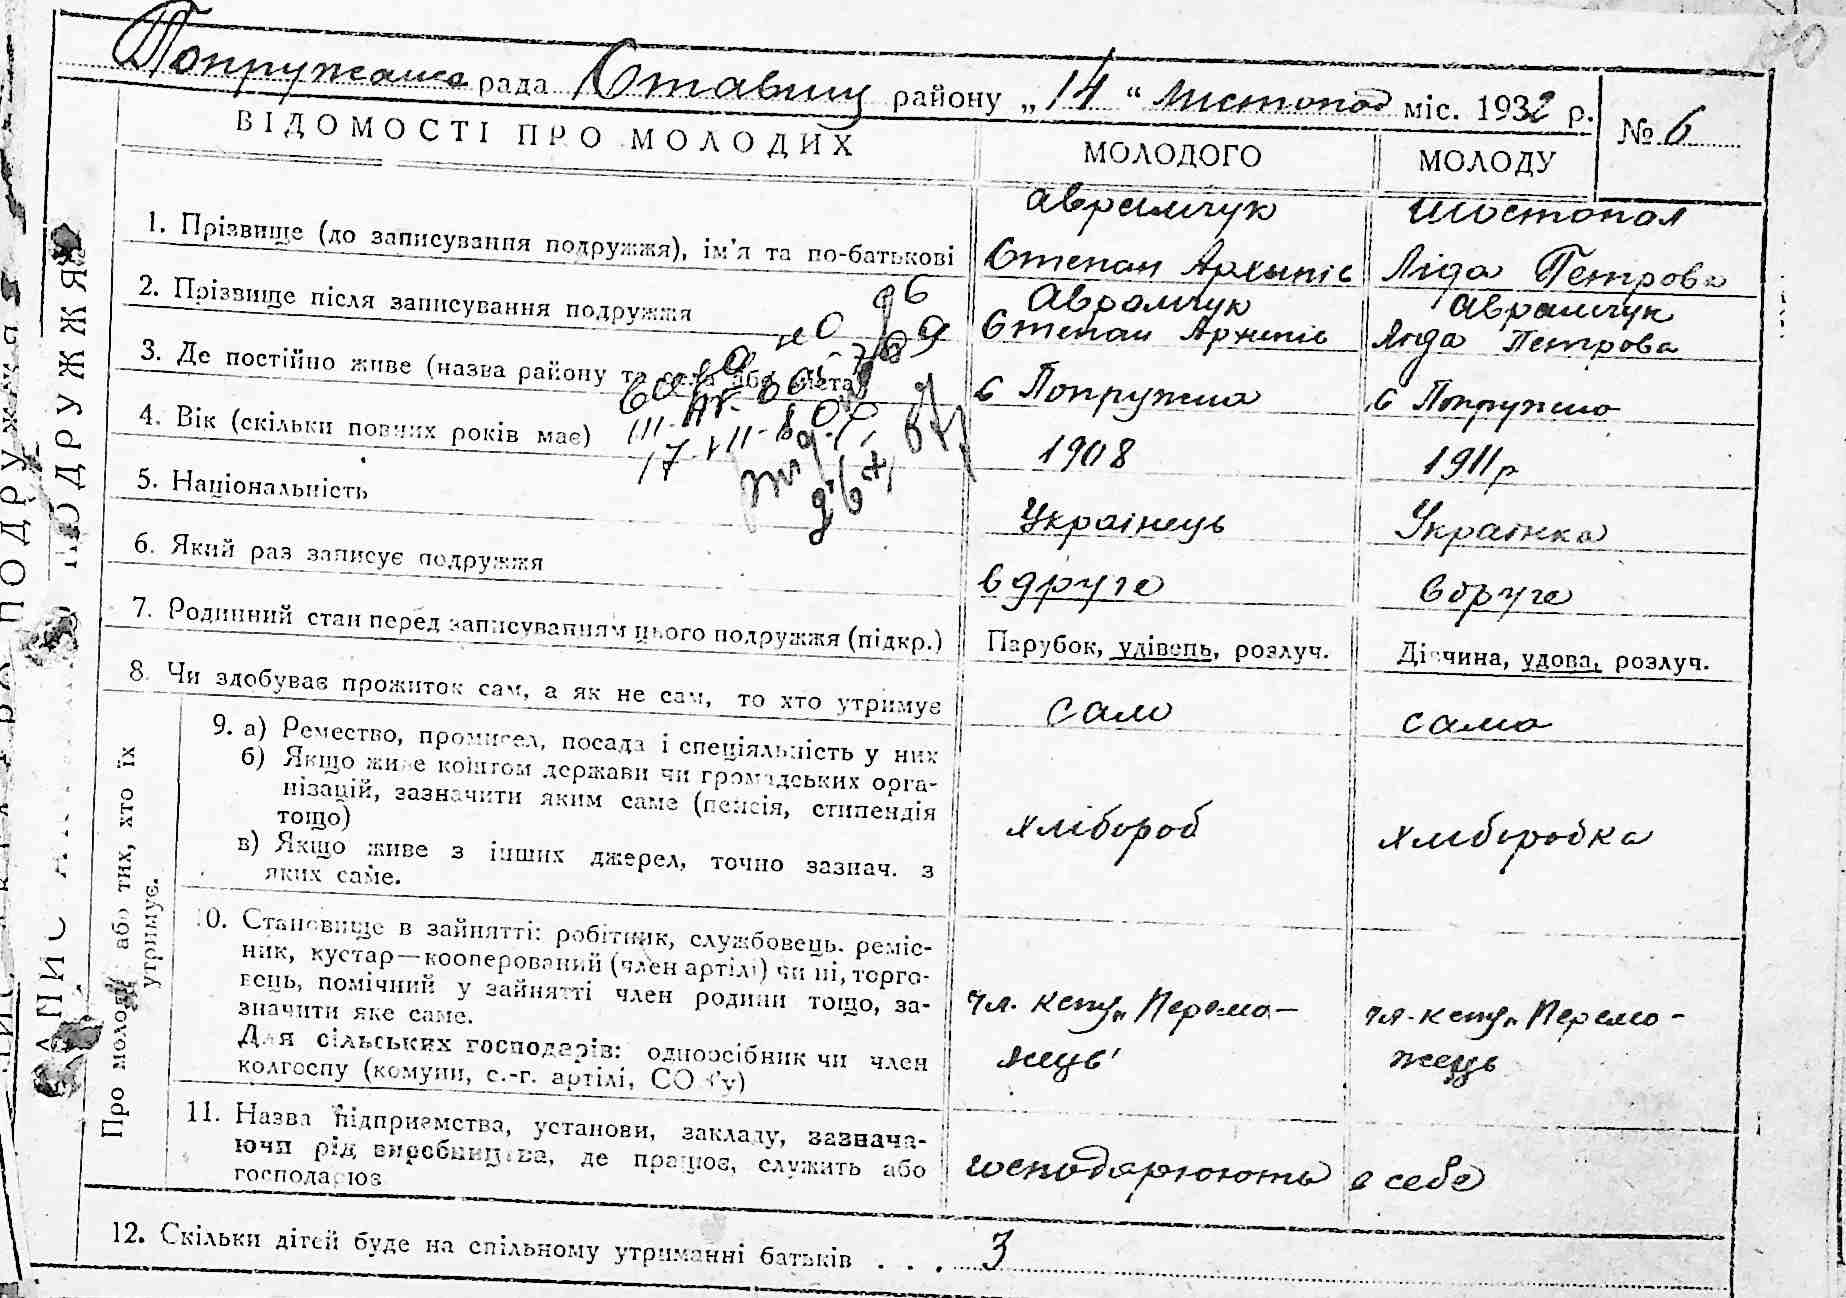 Попружанс рада Ставищ району „14“ листопад міс. 1932 р. № 6
ВІДОМОСТІ ПРО МОЛОДИХ МОЛОДОГО МОЛОДУ
1. Прізвище (до записування подружжя), ім'я та по-батькові Аврамчук Степан Архипів Шостопал Ліда Петрова
2. Прізвище після записування подружжя Аврамчук Степан Архипів Аврамчук Ліда Петрова
3. Де постійно живе (назва району та села або міста) с Попружна с Попружна
4. Вік (скільки повних років має) 1908 1911р
5. Національність Українець Українка
6. Який раз записує подружжя вдруге вдруге
7. Родинний стан перед записуванням цього подружжя (підкр.) Парубок, удівець, розлуч. Дівчина, удова, розлуч.
8. Чи здобуває прожиток сам, а як не сам, то хто утримує сам сама
Про молодих або тих, хто їх утримує.
9. а) Ремество, промисел, посада і спеціяльність у них
б) Якщо живе коштом держави чи громадських орга-
нізацій, зазначити яким саме (пенсія, стипендія
тощо)
в) Якщо живе з інших джерел, точно зазнач. з
яких саме.
хлібороб хліборобка
10. Становище в зайнятті: робітник, службовець, реміс-
ник, кустар—кооперований (член артілі) чи ні, торго-
вець, помічний у зайнятті член родини тощо, за-
значити яке саме.
Для сільських господарів: одноосібник чи член
колгоспу (комуни, с.-г. артілі, СОЗ'у)
чл. ксту „Перемо-
жець"
чл. ксту „Перемо-
жець
11. Назва підприємства, установи, закладу, зазнача-
ючи рід виробництва, де працює, служить або
господарює
господарюють в себе
12. Скільки дітей буде на спільному утриманні батьків . . . 3